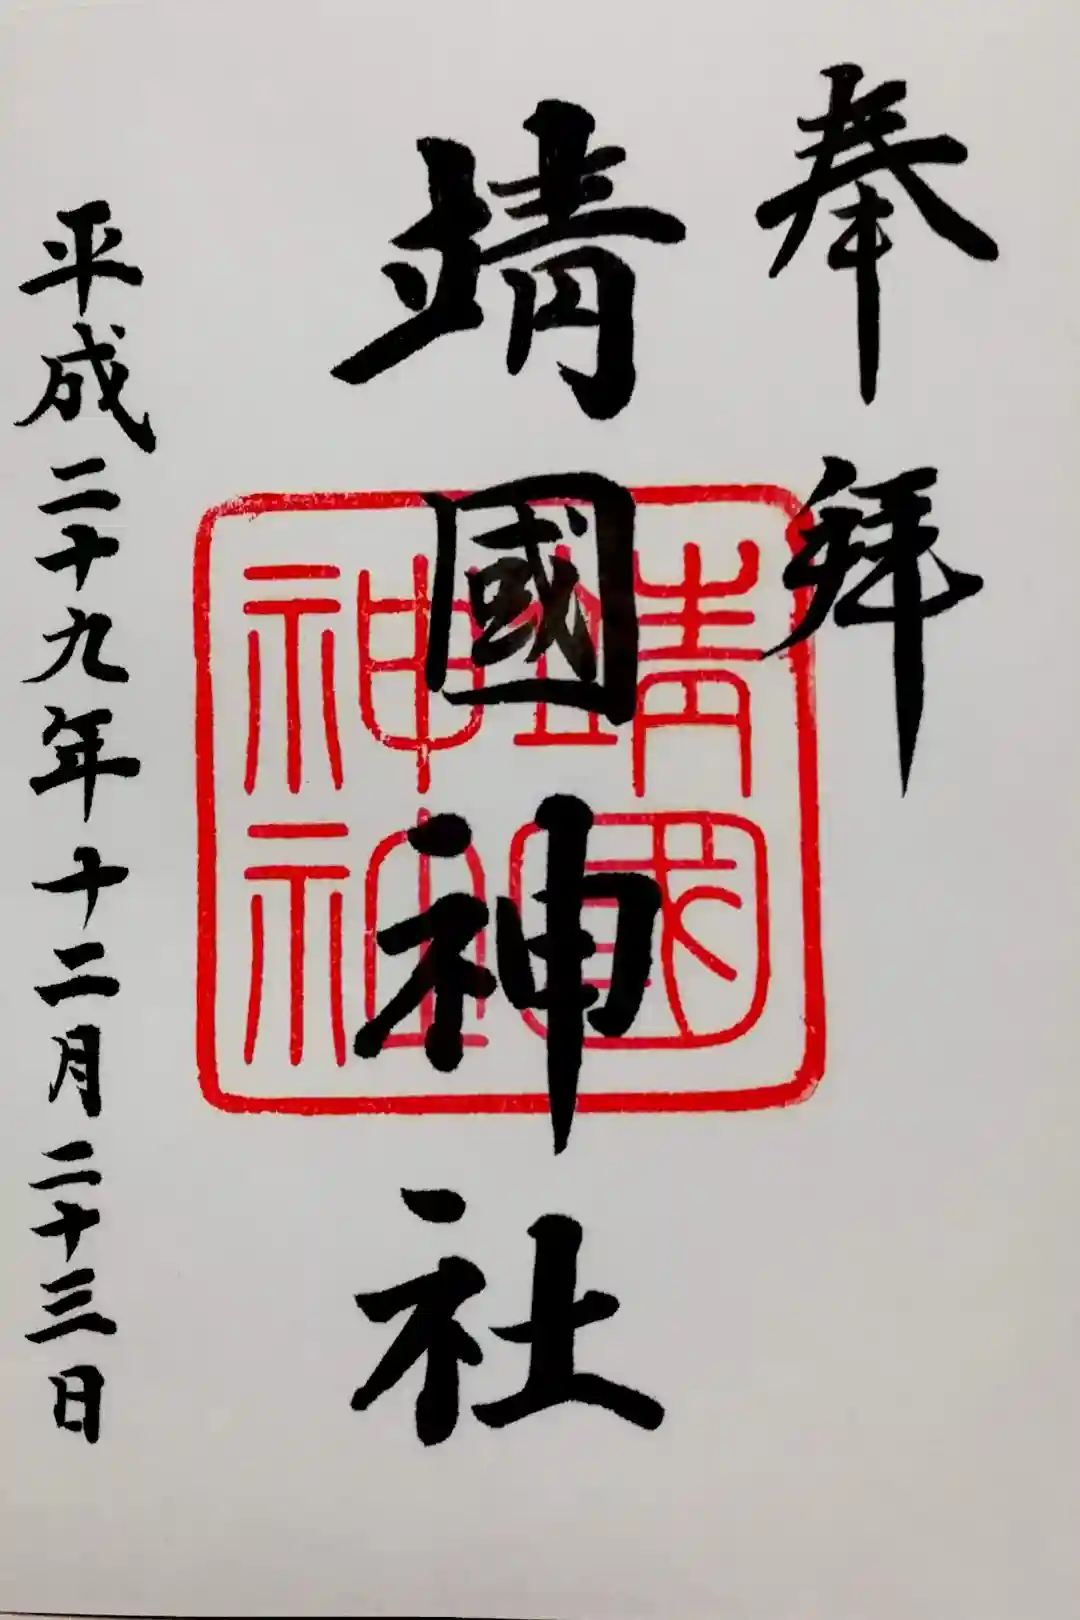 奉拜
靖國神社
平成二十九年十二月二十三日
靖國
神社